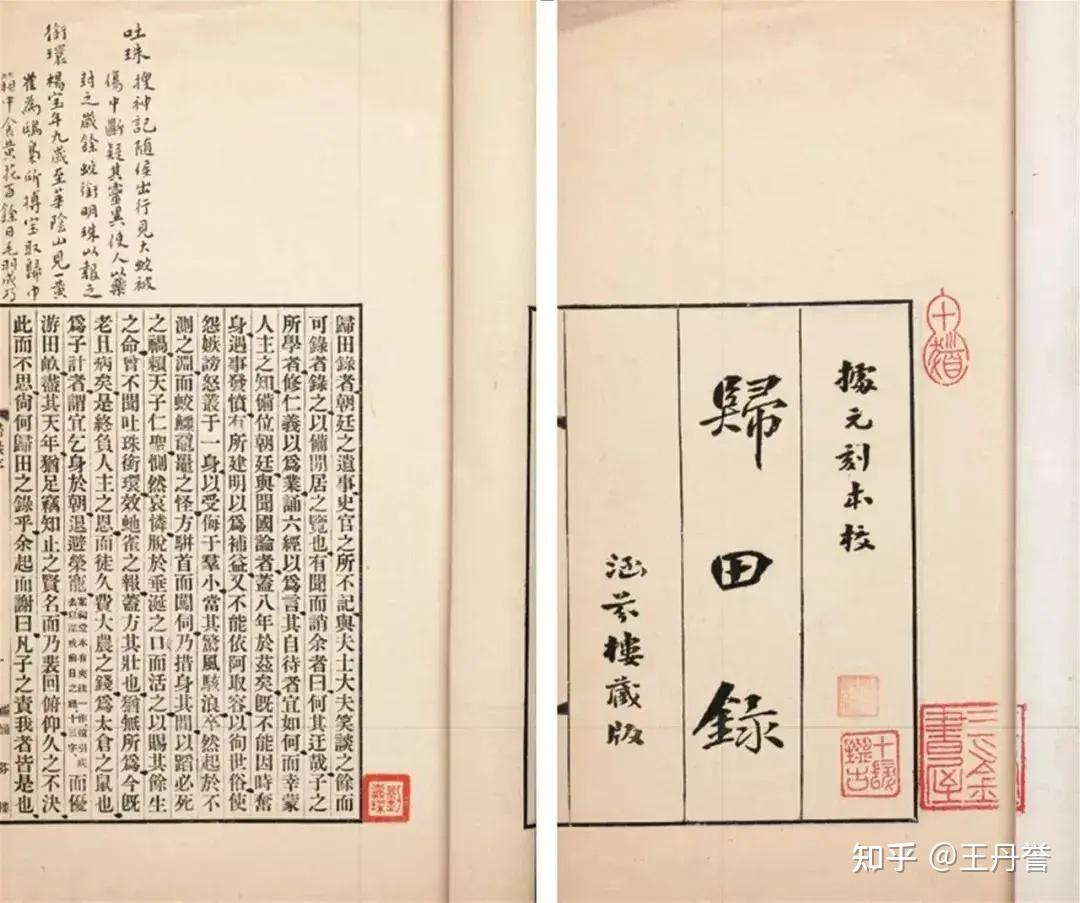 據元刻本校
歸田錄
涵芬樓藏版
吐珠 搜神記隨侯出行見大蛇被
傷中斷疑其靈異使人以藥
封之歲餘蛇銜明珠以報之
銜環 楊宝年九歲至華陰山見一黃
雀為鴟梟所搏宝取歸巾
箱中食黃花百餘日毛羽成乃
歸田錄者朝廷之遺事史官之所不記與夫士大夫笑談之餘而
可錄者錄之以備閒居之覽也有聞而誚余者曰何其迂哉子之
所學者修仁義以爲業誦六經以爲言其自待者宜如何而幸蒙
人主之知備位朝廷與聞國論者蓋八年於茲矣旣不能因時奮
身遇事發憤有所建明以爲補益又不能依阿取容以徇世俗使
怨嫉謗怒叢于一身以受侮于羣小當其驚風駭浪卒然起於不
測之淵而蛟鱷黿鼉之怪方駢首而闖伺乃措身其間以蹈必死
之禍賴天子仁聖惻然哀憐脫於垂涎之口而活之以賜其餘生
之命曾不聞吐珠銜環效虵雀之報蓋方其壯也猶無所爲今旣
老且病矣是終負人主之恩而徒久費大農之錢爲太倉之鼠也
爲子計者謂宜乞身於朝退避榮寵 案祠堂本有夾註一作 十三字 而優
游田畝盡其天年猶足竊知止之賢名而乃裴回俯仰久之不決
此而不思尙何歸田之錄乎余起而謝曰凡子之責我者皆是也
知乎 @王丹誉